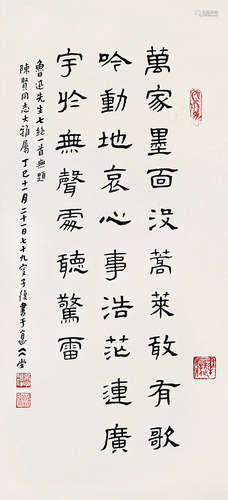 萬家墨面沒蒿萊敢有歌
吟動地哀心事浩茫連廣
宇於無聲處聽驚雷
魯迅先生七絕一首無題
陳賢同志大雅屬丁巳十一月二十一日七十九叟子復書于堂